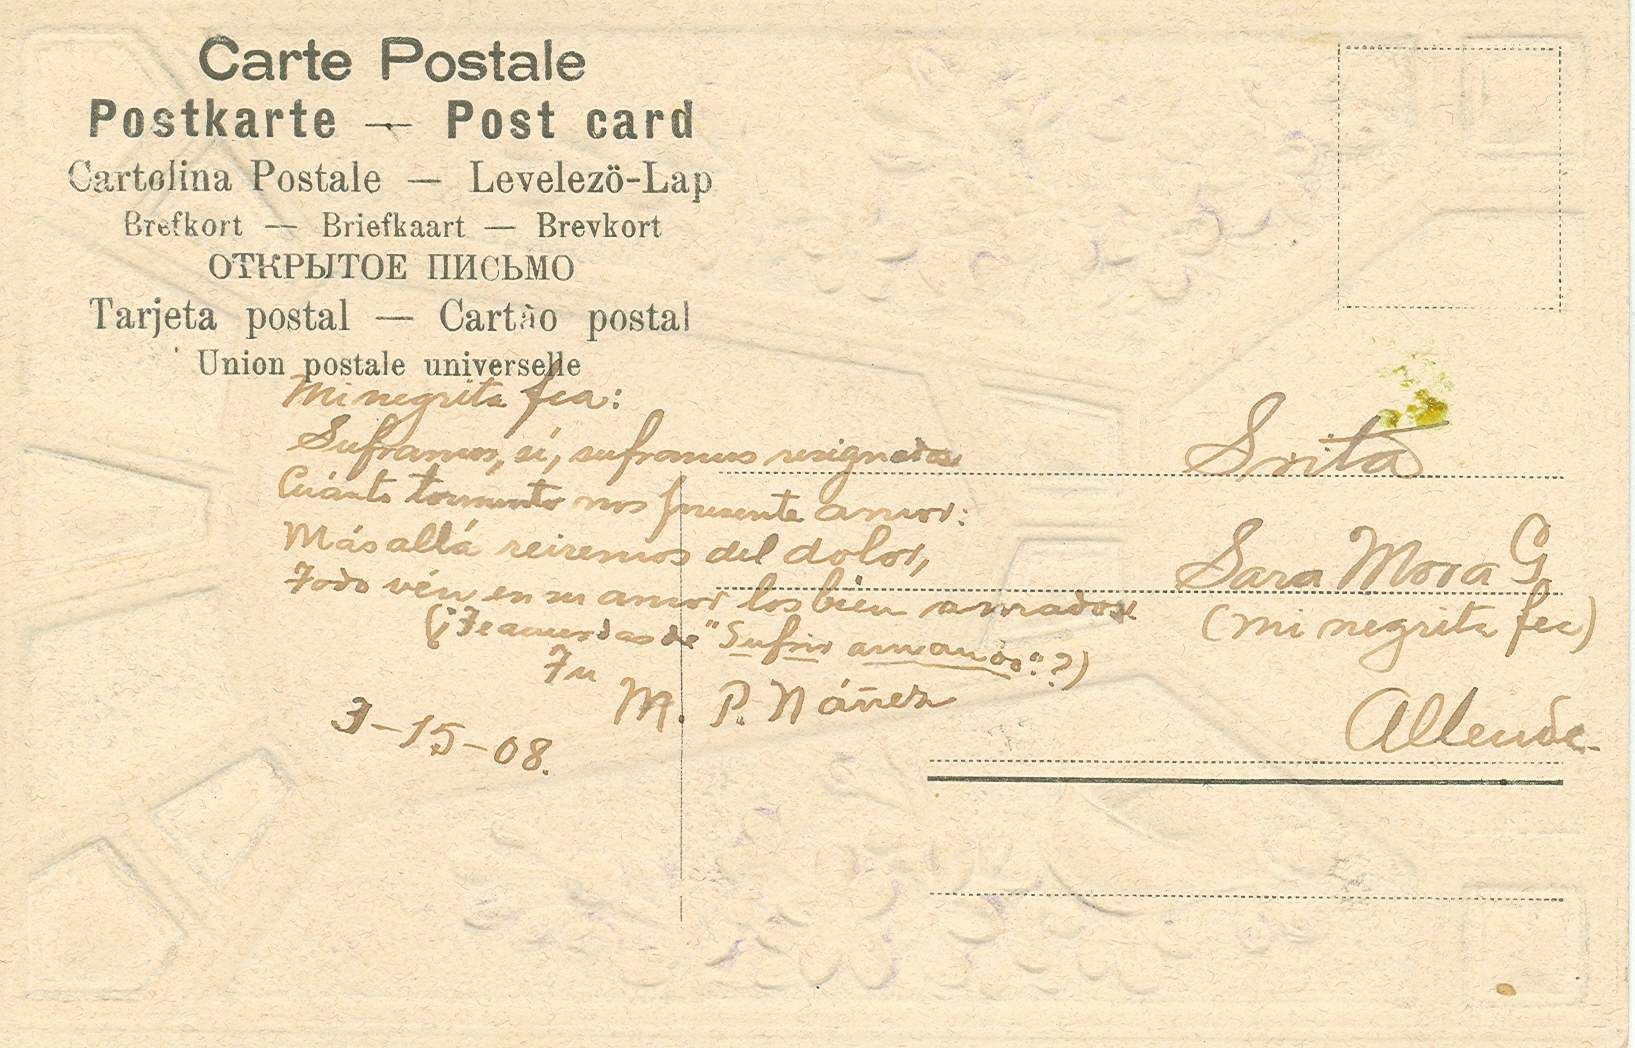 Carte Postale
Postkarte — Post card
Cartolina Postale — Levelezö-Lap
Brefkort — Briefkaart — Brevkort
ОТКРЫТОЕ ПИСЬМО
Tarjeta postal — Cartão postal
Union postale universelle
Mi negrita fea:
Suframos, sí, suframos resignados
Cuánto tormento nos presente amor:
Más allá reiremos del dolor,
Todo vén en su amor los bien amados.
(¡Te acuerdas de "Sufrir amando"?)
Tu
M. P. Náñez
3-15-08.
Srita
Sara Mora G.
(mi negrita fea)
Allende.